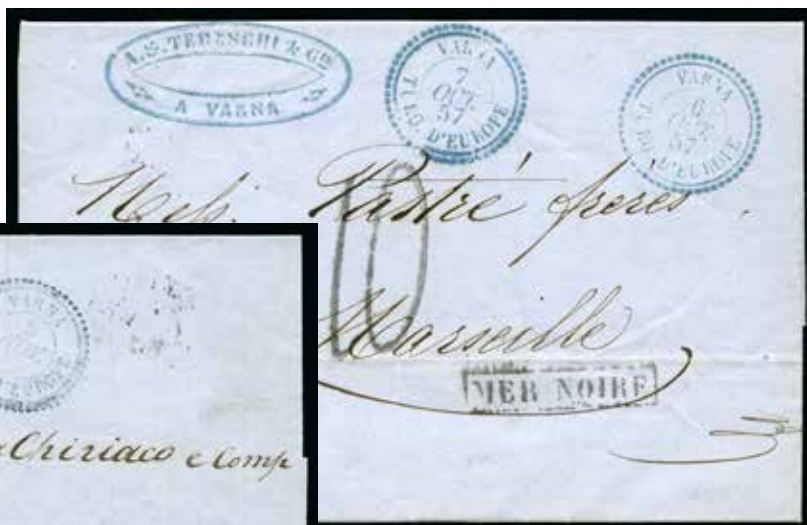 A. S. TEDESCHI & Cie
A VARNA
VARNA
7
OCT.
57
TURQ. D'EUROPE
VARNA
6
OCT.
57
TURQ. D'EUROPE
Mess. Pastré frères.
10
Marseille
MER NOIRE
VARNA
D'EUROPE
Chiriaco e Comp